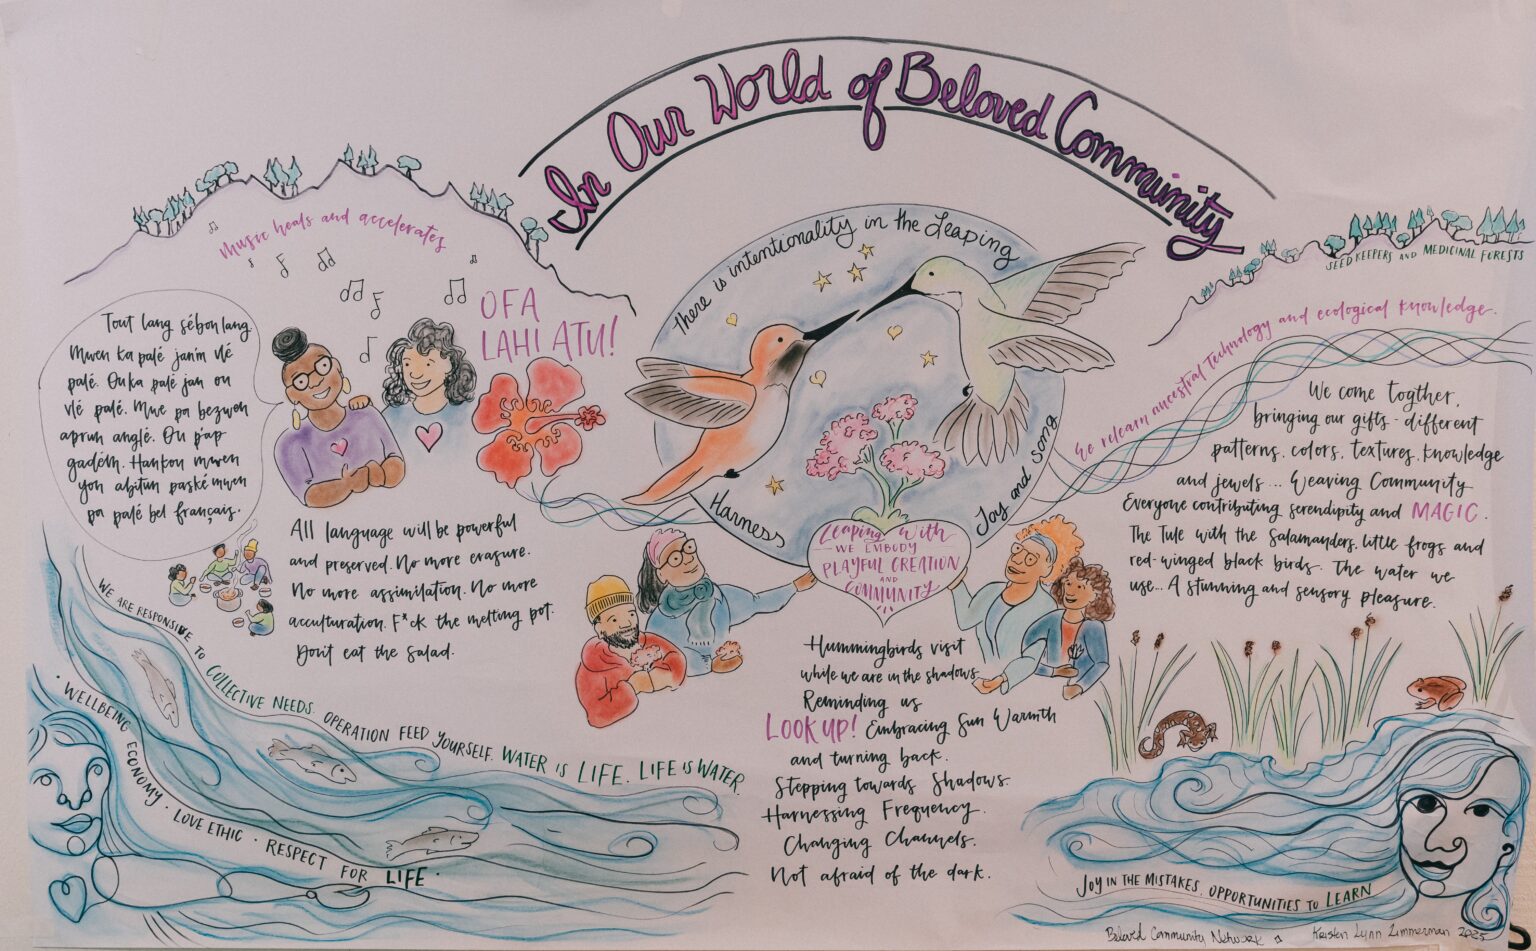 In Our World of Beloved Community
Music heals and accelerates
OFA
LAHI ATU!
Tout lang sébon lang.
Mwen ka palé janm vlé
palé. Ou ka palé jan ou
vlé palé. Mwe pa bezwen
aprun anglé. Ou p'ap
gadém. Hankou mwen
yon abitun paské mwen
pa palé bel français.
All language will be powerful
and preserved. No more erasure.
No more assimilation. No more
acculturation. F*ck the melting pot.
Don't eat the salad.
WE ARE RESPONSIVE TO COLLECTIVE NEEDS. OPERATION FEED YOURSELF. WATER IS LIFE. LIFE IS WATER.
· WELLBEING ECONOMY · LOVE ETHIC · RESPECT FOR LIFE ·
There is intentionality in the Leaping
Harness
Joy and Song
Leaping with
WE EMBODY
PLAYFUL CREATION
AND
COMMUNITY
Hummingbirds visit
while we are in the shadows
Reminding us
LOOK UP! Embracing Sun Warmth
and turning back.
Stepping towards Shadows.
Harnessing Frequency.
Changing Channels.
Not afraid of the dark.
SEED KEEPERS AND MEDICINAL FORESTS
We relearn ancestral technology and ecological knowledge.
We come togther,
bringing our gifts - different
patterns, colors, textures, knowledge
and jewels... Weaving Community
Everyone contributing serendipity and MAGIC.
The Tule with the Salamanders, little frogs and
red-winged black birds. The water we
use... A stunning and sensory pleasure.
JOY IN THE MISTAKES, OPPORTUNITIES TO LEARN
Beloved Community Network
Kristen Lynn Zimmerman 2025